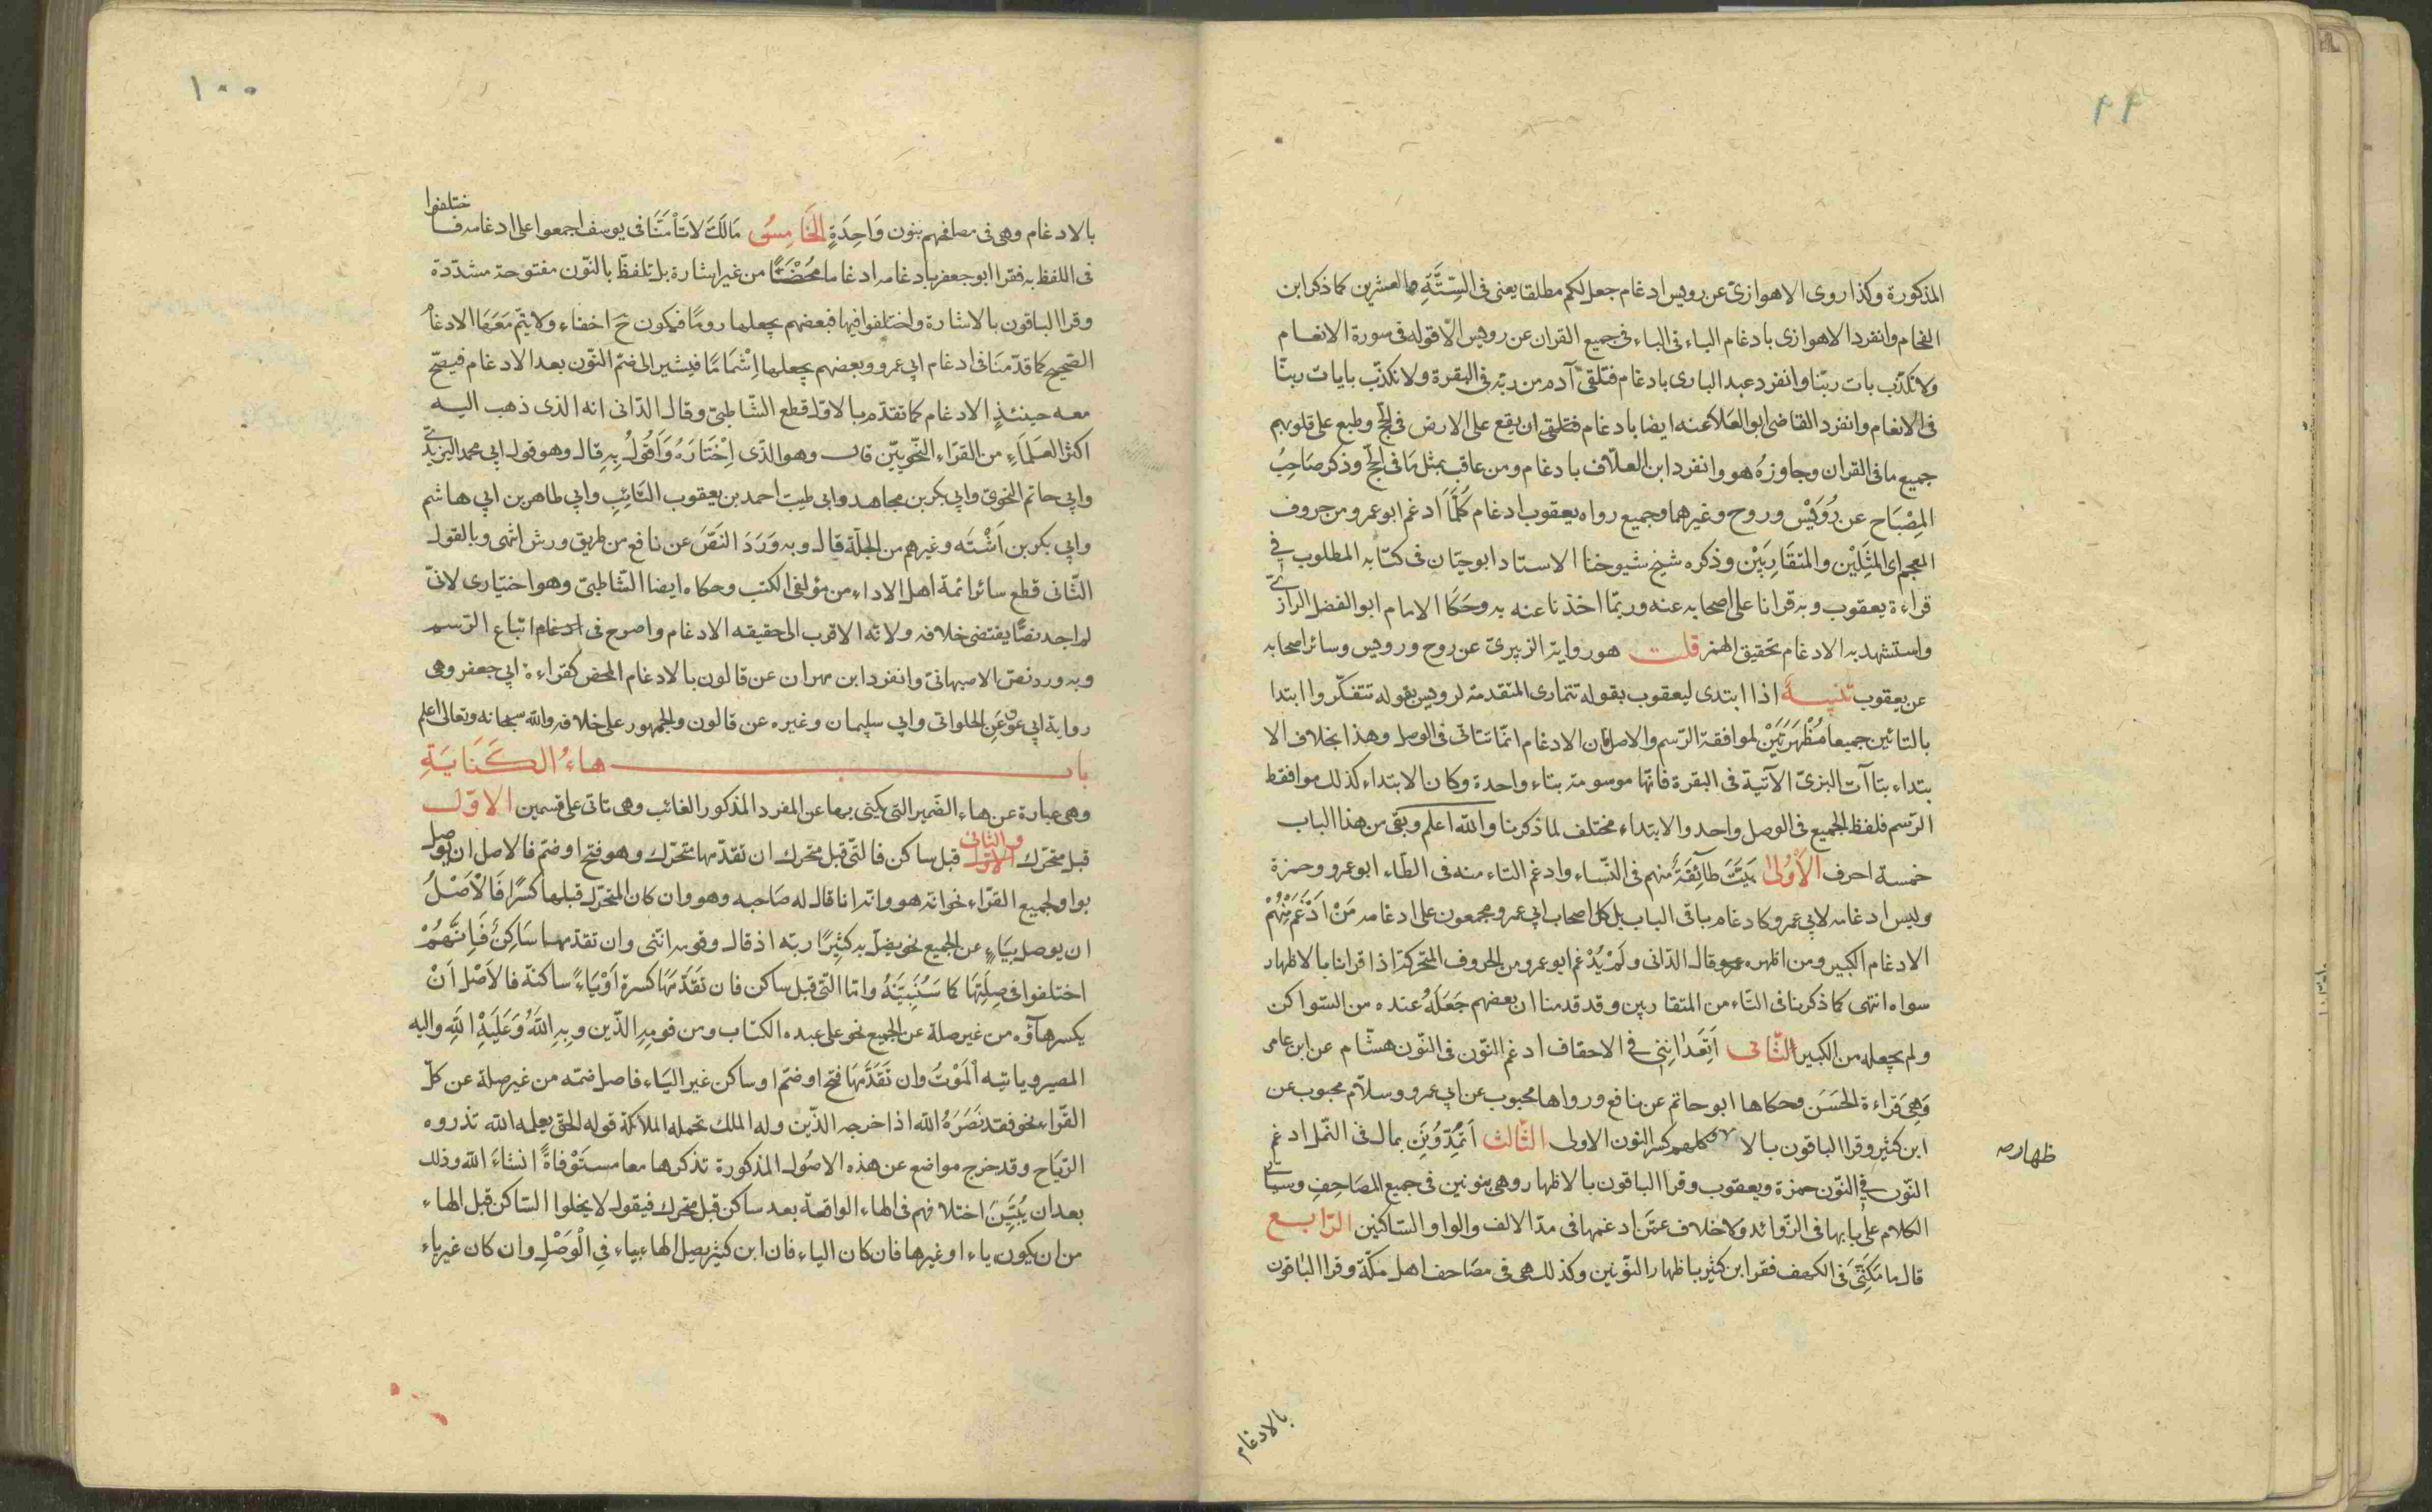 ٩٩
المذكورة وكذا روى الاهوازىّ عن رويس ادغام جعل لكم مطلقا يعنى فى السِّتَّةِ والعشرين كما ذكر ابن
الفحام وانفرد الاهوازى بادغام الباء فى الباء فى جميع القران عن رويس الّا قوله فى سورة الانعام
ولا نكذّب بات ربّنا وانفرد عبد البارى بادغام فتلقى آدم من ربّه فى البقرة ولا نكذّب بايات ربنّا
فى الانعام وانفرد القاضى ابو العَلا عنه ايضا بادغام فتلقى ان يقع على الارض فى الحجّ وطبع على قلوبهم
جميع ما فى القران وجاوزهُ هو وانفرد ابن العلّاف بادغام ومن عاقب بمثل مَا فى الحجّ وذكر صَاحِبُ
المِصْبَاح عن رُوَيْس وروح وغيرهما وجميع رواه يعقوب ادغام كُلَّمَا اَدغم ابو عمرو من حروف
المعجم اى المثِلَيْن والمتقَارِبَيْن وذكره شيخ شيوخنا الاستاد ابو حيّان فى كتابه المطلوب فى
قراءة يعقوب وبه قرانا على اصحابه عنه وربّما اخذنا عنه به وحَكَا الامام ابو الفضل الرازىّ
واستشهد به الادغام تحقيق الهمز قلت هو رواية الزبيرىّ عن روح ورويس وسائر اصحابه
عن يعقوب تنبيهٌ اذا ابتدى ليعقوب بقوله تتمارى المتقدمة لرويس بقوله تتفكّروا ابتدا
بالتائين جميعا مُظْهَرَتَيْن لموافقة الرّسم والاصل فان الادغام انمّا تتاتى فى الوصل وهذا بخلاف الا
بتداء بتاآت البزىّ الآتية فى البقرة فانّها موسومة بتاء واحدة وكان الابتداء كذلك موافقط
الرّسم فلفظ الجميع فى الوصل واحد والابتداء مختلف لما ذكرنا والله اعلم وبقى من هذا الباب
خمسة احرف الْأُوْلٰى بَيَّتَ طَآئِفَةٌ منهم فى النّساء وادغم التاء منه فى الطّاء ابو عمرو وحمزة
وليس ادغامه لابى عمرو كادغام باقى الباب بل كل اصحاب ابى عمرو مجمعون على ادغامه مَنْ اَدْغَمَ مِنْهُمْ
الادغام الكبير ومن اظهره وقال الدّانى ولَمْ يُدْغم ابو عمرو من الحروف المتحركة اذا قرانا بالاظهار
سواه انتهى كما ذكرنا فى التّاء من المتقاربين وقد قدمنا ان بعضهم جَعَلَهُ عنده من السّواكن
ولم يجعله من الكبير الثّانى اَتَعِدَانِنِى فى الاحقاف ادغم النّون فى النّون هشّام عن ابن عامر
وَهِىَ قراءة الحَسَن وحكاها ابو حاتم عن نافع ورواها محبوب عن ابى عمرو وسلّام محبوب عن
ابن كثير وقرا الباقون بالا وكلهم كسر النون الاولى الثّالث اَتُمِدُّوْنَنِ بمال فى النّمل ادغم
ظهار صـ
النّون فى النّون حمزة ويعقوب وقرا الباقون بالاظهار وهى بنونين فى جميع المصَاحِفِ وسيأتى
الكلام على يايها فى الزّوائد ولا خلاف عمّن ادغمها فى مدّ الالف والواو السّاكنين الرّابع
قال ما مَكّنّى فى الكهف فقرا ابن كثير باظهار النّونين وكذلك هى فى مصَاحف اهل مكّة وقرا الباقون
بالادغام
١٠٠
بالادغام وهى فى مصافهم بنون وَاحِدَةٍ الْخَامِسُ مَالَكَ لَا تَأْمَنَّا فى يوسف اجمعوا على ادغامه فاختلفوا
فى اللفظ به فقرا ابو جعفر بادغامه ادغاما مَحْضًا من غير اشارة بل تلفظّ بالنّون مفتوحة مشدّدة
وقرا الباقون بالاشارة واختلفوا فيها فبعضهم يجعلها رومًا فيكون حَ اخفاء ولا يتمّ مَعَهَا الادغامُ
الصّحيح كما قدّمنَا فى ادغام ابى عمرو وبعضهم يجعلها اِشْمَامًا فيشير الى ضمّ النّون بعد الادغام فيصحّ
معه حينئذٍ الادغام كما تقدّم بالاوّل قطع الشّاطبىّ وقال الدّانى انه الذى ذهب اليه
اكثر العُلمَاءِ من القرّاء النّحويّين قال وهو الذّى اِخْتَارَهُ وَاَقُولُ بِهِ قال وهو قول ابى محمد اليزيدىّ
وابى حاتم النحوىّ وابى بكر بن مجاهد وابى طيب احمد بن يعقوب التَّائِبِ وابى طاهر بن ابى هاشم
وابى بكر بن اَشْتَه وغيرهم من الجلّة قال وبه وَرَدَ النَصّ عن نافع من طريق ورش انتهى وبالقول
الثّانى قطع سائر ائمة اهل الاداء من مؤلفى الكتب وحكاه ايضا الشّاطبىّ وهو اختيارى لانّى
لم اجد نصًّا يقتضى خلافه ولانّه الاقرب الى حقيقه الادغام واصرح فى ادغام اتباع الرّسم
وبه ورد نصّ الاصبهانىّ وانفرد ابن مهران عن قالون بالادغام المحض كقراءة ابى جعفر وهى
رواية ابى عون عَن الحلوانى وابى سليمان وغيره عن قالون والجمهور على خلافه والله سبحانه وتعالى اعلم
باب هاءُ الكَنَايَةِ
وهى عبارة عن هاء الضمير التى يكنى بها عن المفرد المذكور الغائب وهى تاتى على قسمين الاوّل
قبل متحرّك والثانى قبل ساكن فالتّى قبل متحرك ان تقدّمها متحرّك وهو فتح او ضمّ فالاصل ان يوصل
بواو لجميع القرّاء نحو انه هو وانّه انا قال له صَاحبه وهو وان كان المتحرّك قبلها كسرًا فَالْاَصْلُ
ان يوصل بيَاءٍ عن الجميع نحو يضلّ به كثِيْرًا ربّه اذ قال وقومه انّنى وان تقدّمها سَاكِنٌ فَاِنَّهُمْ
اختلفوا فى صِلَتِهَا كما سَنُبَيِّنَهُ وامّا التّى قبل ساكن فان تقَدَّمَهَا كسرة اَوْيَاءً ساكنة فالاَصْل اَنْ
يكسر هآؤه من غير صلة عن الجميع نحو على عبده الكتاب ومن قومِهِ الّذين وبِهِ اللّهُ وَعَلَيْهِ اللّهِ واليه
المصير وياتيه الْمَوْتُ وان تقَدَّمَهَا فتح او ضمّ او ساكن غير اليَاء فاصل ضمّه من غير صلة عن كلّ
القرّاء نحو فقد نَصَرَهُ الله اذا خرجه الذّين وله الملك تحمله الملائكة قوله الحق يعلمه الله تذروه
الرّيَاح وقد خرج مواضع عن هذه الاصُول المذكورة تذكرها معا مستَوْفاةً انشاءَ الله وذلك
بعد ان يُبَيِّنَ اختلافهم فى الهاء الواقعة بعد ساكن قبل متحرك فيقول لا يخلوا السّاكن قبل الهاء
من ان يكون ياء او غيرها فان كان الياء فان ابن كثير يصل الهاء بياء فِى الْوَصْلِ وان كان غير ياء